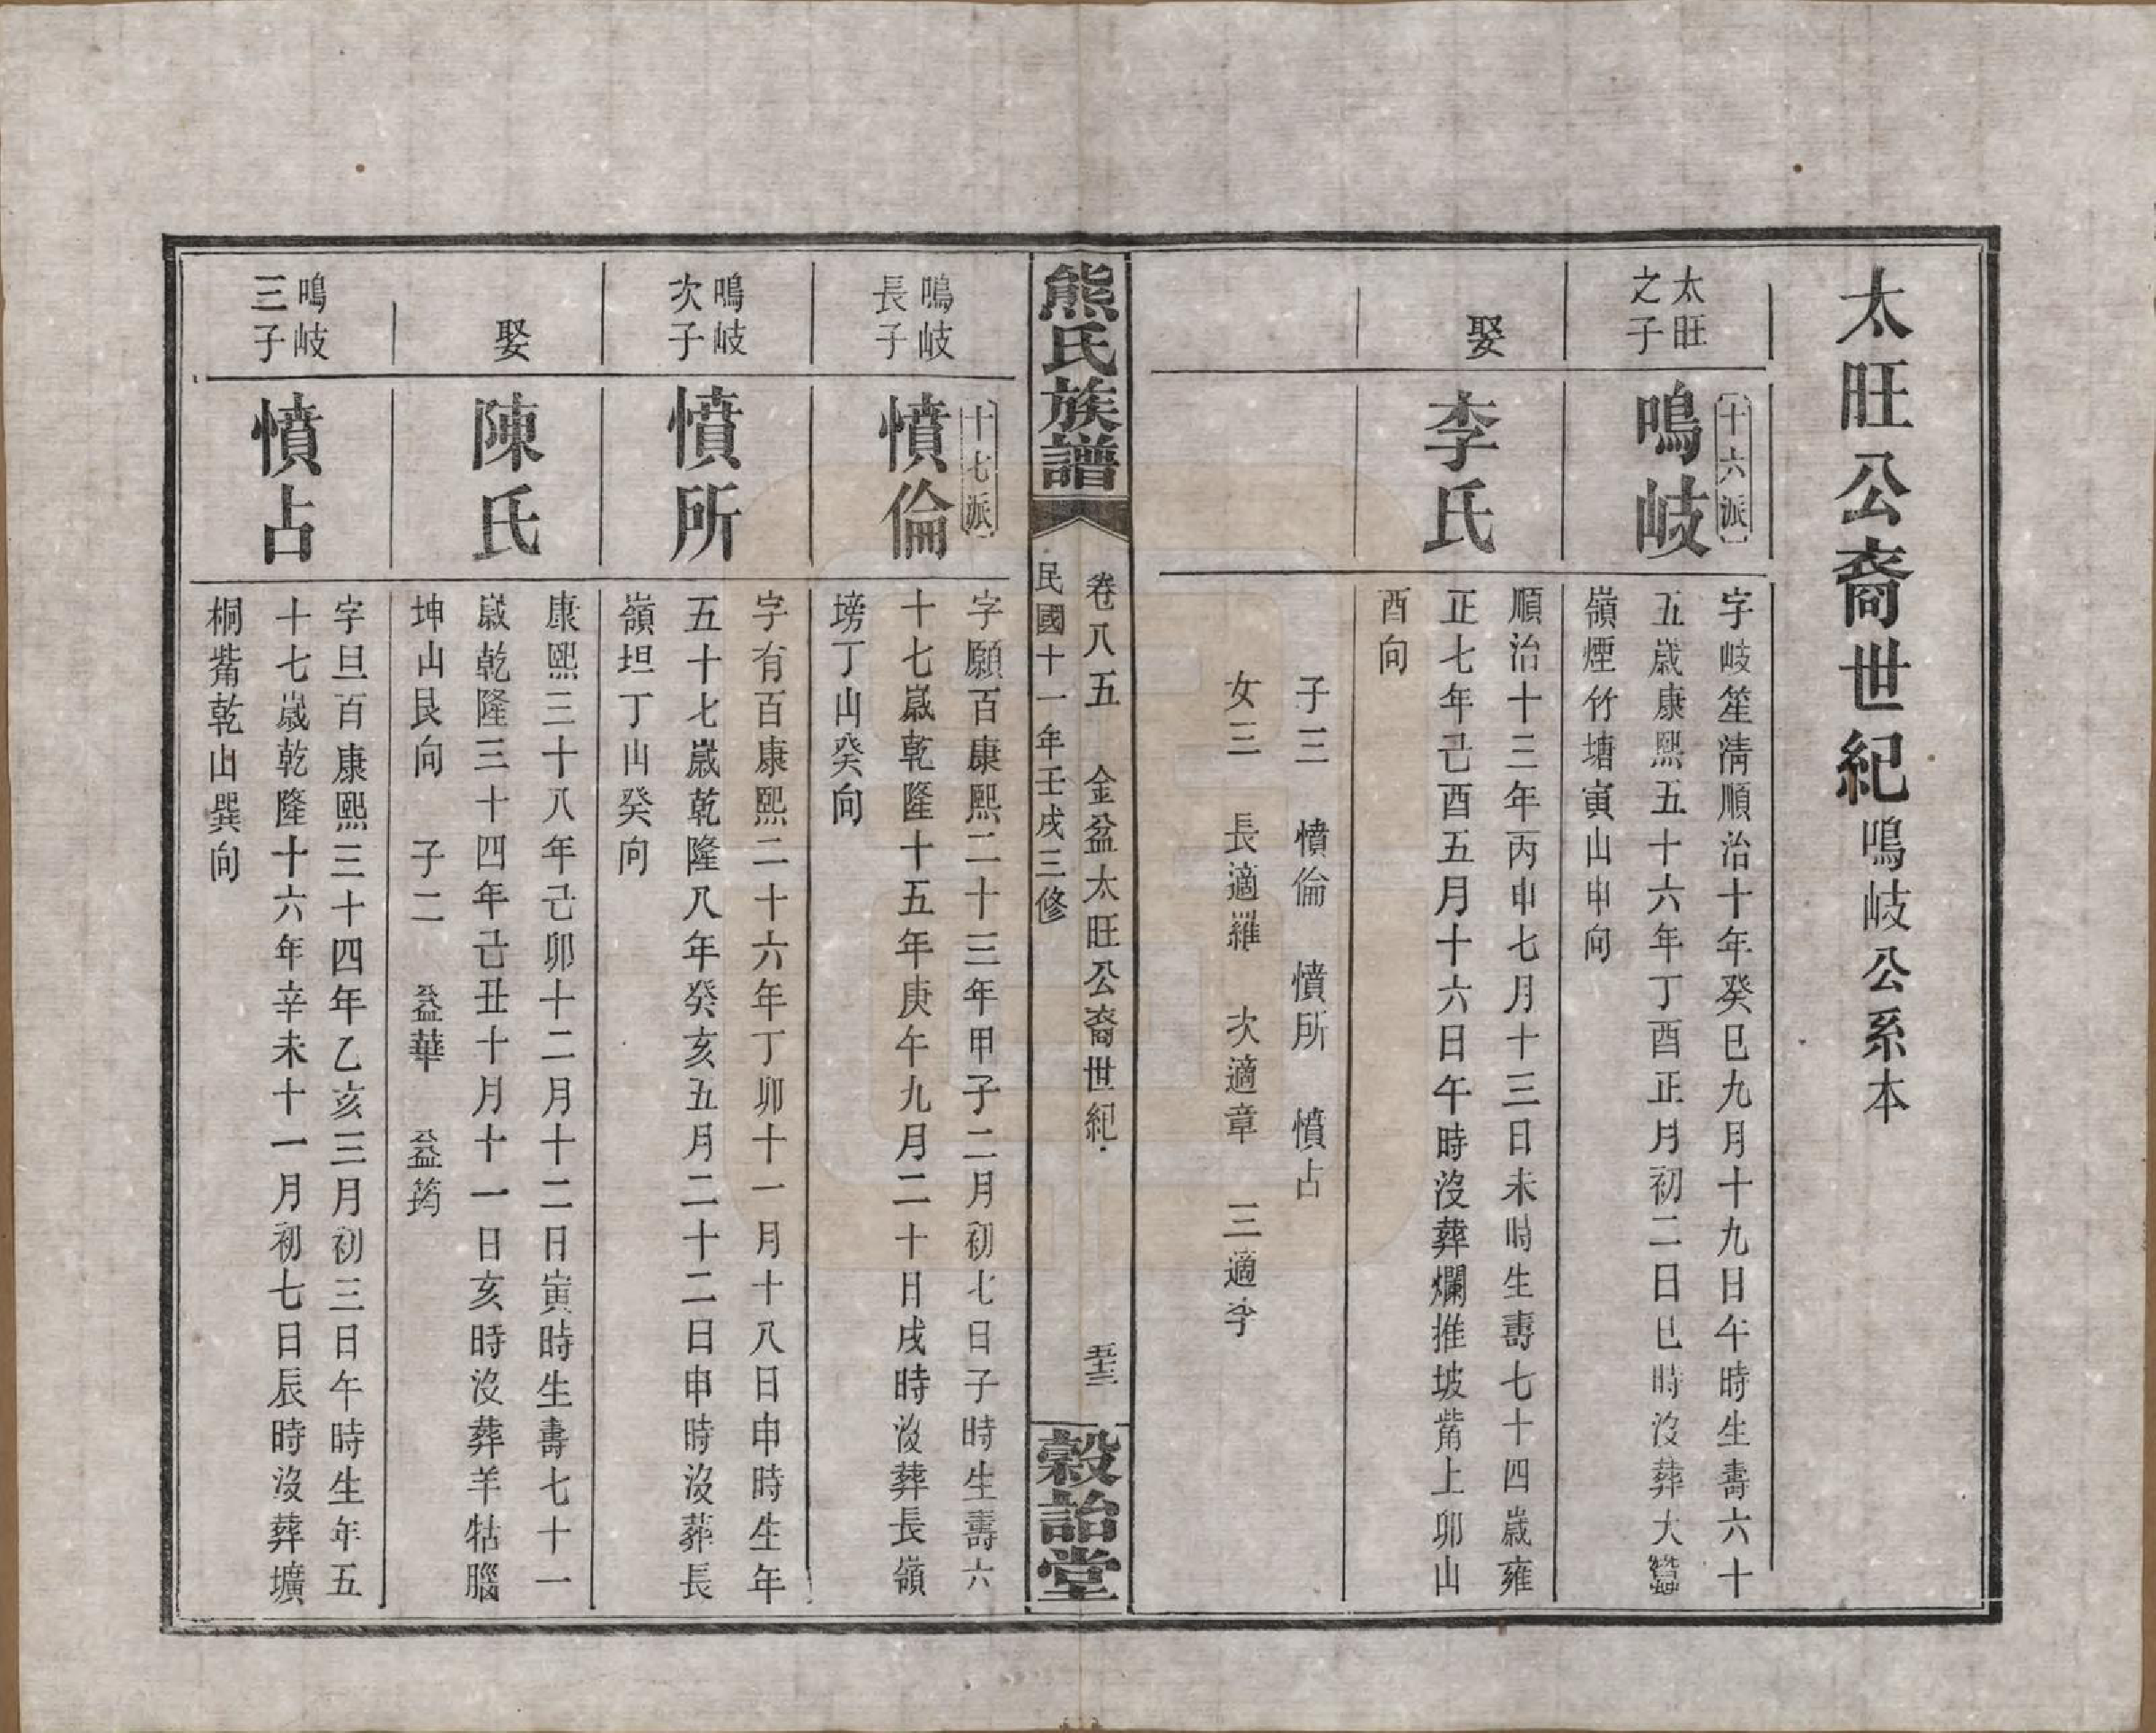 太旺公裔世紀鳴岐公系本
太旺
之子
十六派
鳴岐
字岐笙淸順治十年癸巳九月十九日午時生壽六十
五歲康熙五十六年丁酉正月初二日巳時沒葬大蠶
嶺煙竹塘寅山申向
娶
李氏
順治十三年丙申七月十三日未時生壽七十四歲雍
正七年己酉五月十六日午時沒葬爛推坡觜上卯山
酉向
子三 憤倫 憤所 憤占
女三 長適羅 次適章 三適李
熊氏族譜
卷八五 金盆太旺公裔世紀
五十三
民國十一年壬戌三修
穀詒堂
鳴岐
長子
十七派
憤倫
字願百康熙二十三年甲子二月初七日子時生壽六
十七歲乾隆十五年庚午九月二十日戌時沒葬長嶺
塝丁山癸向
鳴岐
次子
憤所
字有百康熙二十六年丁卯十一月十八日申時生年
五十七歲乾隆八年癸亥五月二十二日申時沒葬長
嶺坦丁山癸向
娶
陳氏
康熙三十八年己卯十二月十二日寅時生壽七十一
歲乾隆三十四年己丑十月十一日亥時沒葬羊牯腦
坤山艮向 子二 益華 益筠
鳴岐
三子
憤占
字旦百康熙三十四年乙亥三月初三日午時生年五
十七歲乾隆十六年辛未十一月初七日辰時沒葬壙
桐觜乾山巽向